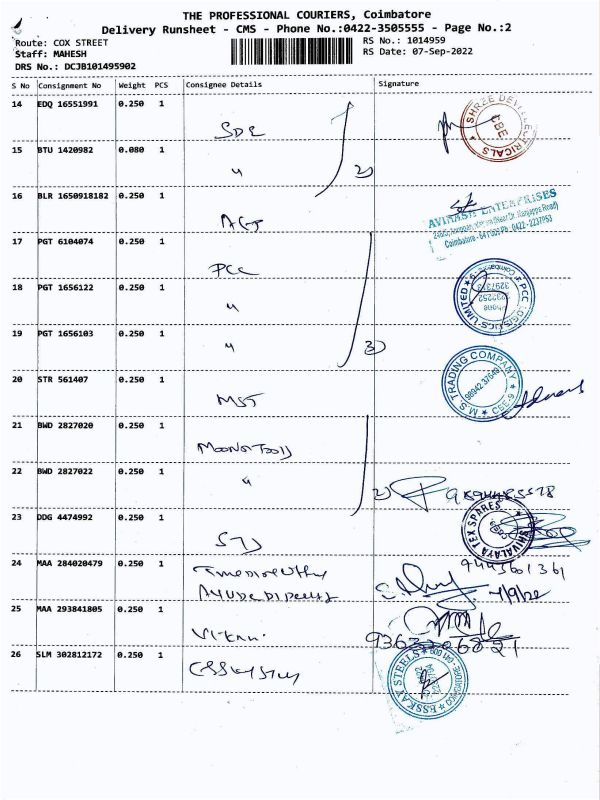 THE PROFESSIONAL COURIERS, Coimbatore
Delivery Runsheet - CMS - Phone No.:0422-3505555 - Page No.:2
Route: COX STREET
Staff: MAHESH
DRS No.: DCJB101495902
RS No.: 1014959
RS Date: 07-Sep-2022
S No Consignment No Weight PCS Consignee Details Signature
14 EDQ 16551991 0.250 1
SHREE DEVI ELECTRICALS CBE
15 BTU 1420982 0.080 1
2)
16 BLR 1650918182 0.250 1
AGT
AVINASH ENTERPRISES
Coimbatore - 641 001 Ph : 0422-2237953
17 PGT 6104074 0.250 1
PCC
18 PGT 1656122 0.250 1
PCC LOGISTICS LIMITED
19 PGT 1656103 0.250 1
3)
20 STR 561407 0.250 1
MST
M S TRADING COMPANY CBE-9
98942 37649
21 BWD 2827020 0.250 1
22 BWD 2827022 0.250 1
2)
23 DDG 4474992 0.250 1
STJ
SHIVALAYA TEX SPARES
24 MAA 284020479 0.250 1
9443601361
7/9/22
25 MAA 293841805 0.250 1
9363206821
26 SLM 302812172 0.250 1
ESSKAY STEELS